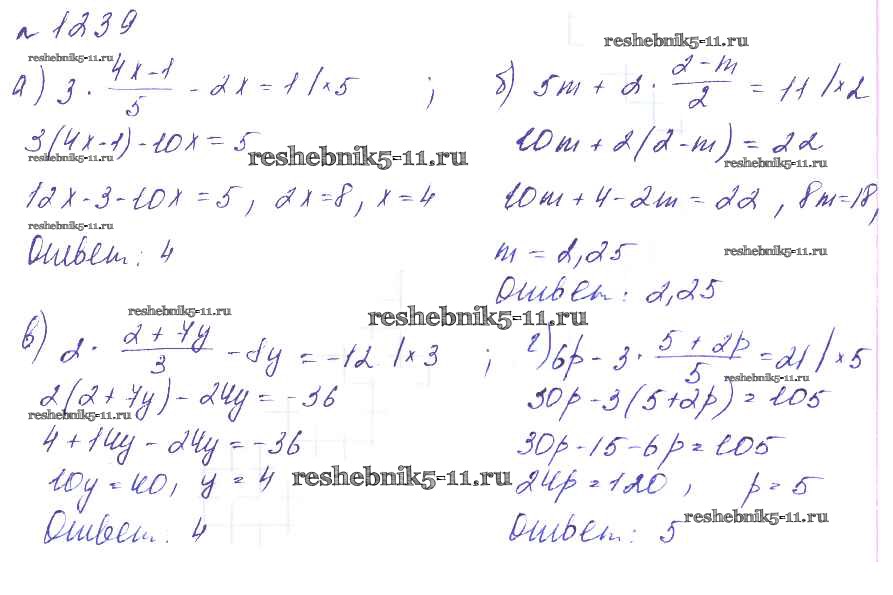 № 1239
reshebnik5-11.ru
reshebnik5-11.ru
а) 3 · (4x-1)/5 - 2x = 1 | ×5 ;
3(4x-1) - 10x = 5
reshebnik5-11.ru
reshebnik5-11.ru
12x - 3 - 10x = 5, 2x = 8, x = 4
reshebnik5-11.ru
Ответ: 4
б) 5m + 2 · (2-m)/2 = 11 | ×2
10m + 2(2-m) = 22
reshebnik5-11.ru
10m + 4 - 2m = 22, 8m = 18,
m = 2,25
reshebnik5-11.ru
Ответ: 2,25
reshebnik5-11.ru
reshebnik5-11.ru
в) 2 · (2+7y)/3 - 8y = -12 | ×3 ;
2(2+7y) - 24y = -36
reshebnik5-11.ru
4 + 14y - 24y = -36
10y = 40, y = 4
reshebnik5-11.ru
Ответ: 4
г) 6p - 3 · (5+2p)/5 = 21 | ×5
reshebnik5-11.ru
30p - 3(5+2p) = 105
30p - 15 - 6p = 105
24p = 120, p = 5
reshebnik5-11.ru
Ответ: 5